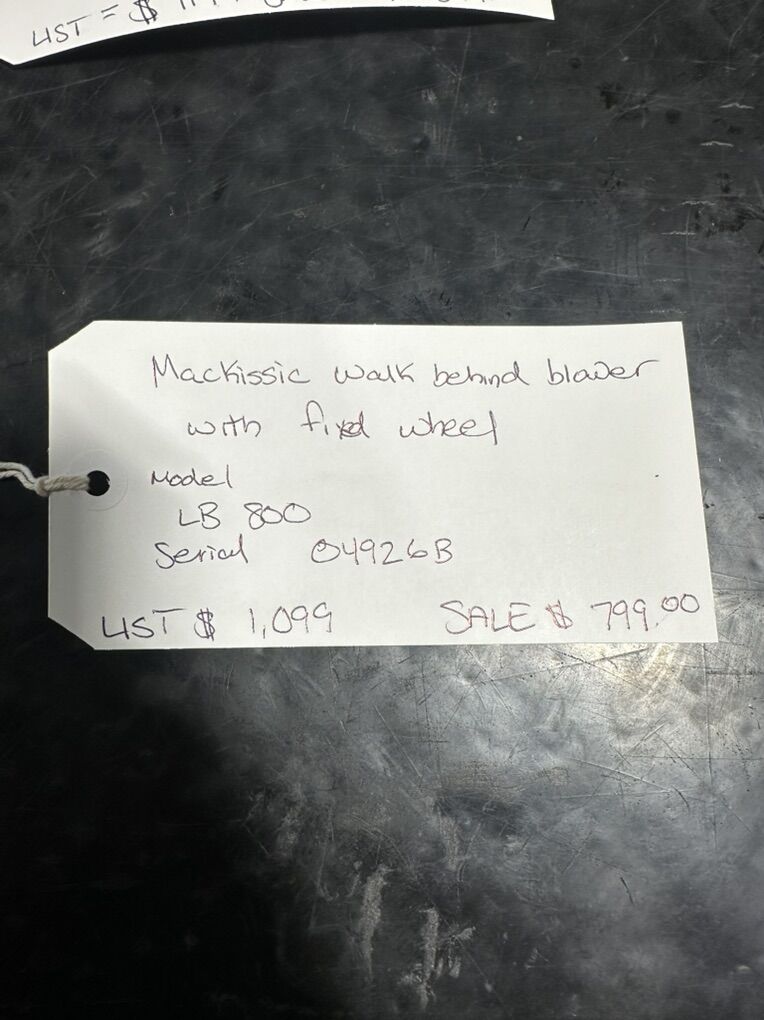 LIST = $
Mackissic walk behind blower
with fixed wheel
Model
LB 800
Serial 04926B
LIST $ 1,099 SALE $ 799.00